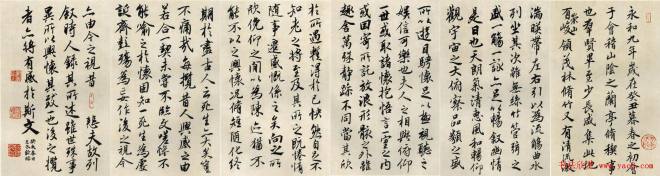 永和九年歲在癸丑暮春之初會
于會稽山陰之蘭亭脩稧事
也羣賢畢至少長咸集此地
有崇山峻領茂林脩竹又有清流激
湍暎帶左右引以為流觴曲水
列坐其次雖無絲竹管絃之
盛一觴一詠亦足以暢敘幽情
是日也天朗氣清惠風和暢仰
觀宇宙之大俯察品類之盛
所以遊目騁懷足以極視聽之
娛信可樂也夫人之相與俯仰
一世或取諸懷抱悟言一室之內
或因寄所託放浪形骸之外雖
趣舍萬殊靜躁不同當其欣
於所遇暫得於己快然自足不
知老之將至及其所之既惓情
隨事遷感慨係之矣向之所
欣俛仰之間以為陳迹猶不
能不以之興懷況脩短隨化終
期於盡古人云死生亦大矣豈
不痛哉每攬昔人興感之由
若合一契未嘗不臨文嗟悼不
能喻之於懷固知一死生為虛
誕齊彭殤為妄作後之視今
亦由今之視昔悲夫故列
敘時人錄其所述雖世殊事
異所以興懷其致一也後之攬
者亦將有感於斯文